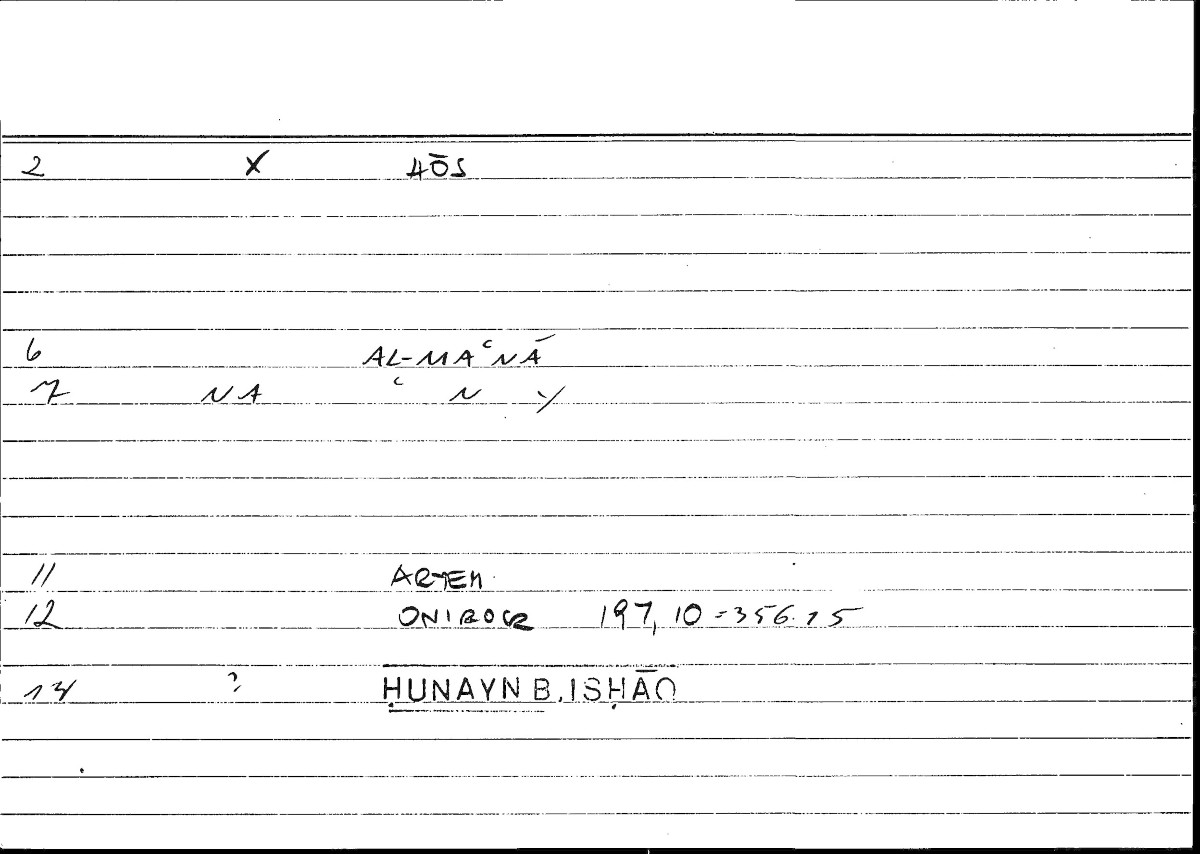 2 X HŌS
6 AL-MAʿNĀ
7 NA ʿ N Y
11 ARTEM
12 ONIROCR 197,10=356.15
14 ? ḤUNAYN B. ISḤĀQ